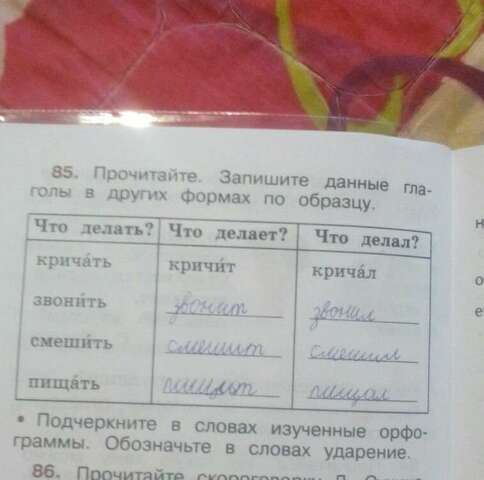 85. Прочитайте. Запишите данные гла-
голы в других формах по образцу.
Что делать? Что делает? Что делал?
крича́ть кричи́т крича́л
звони́ть звонит звонил
смеши́ть смешит смешил
пища́ть пищит пищал
• Подчеркните в словах изученные орфо-
граммы. Обозначьте в словах ударение.
86. Прочитайте скороговорку